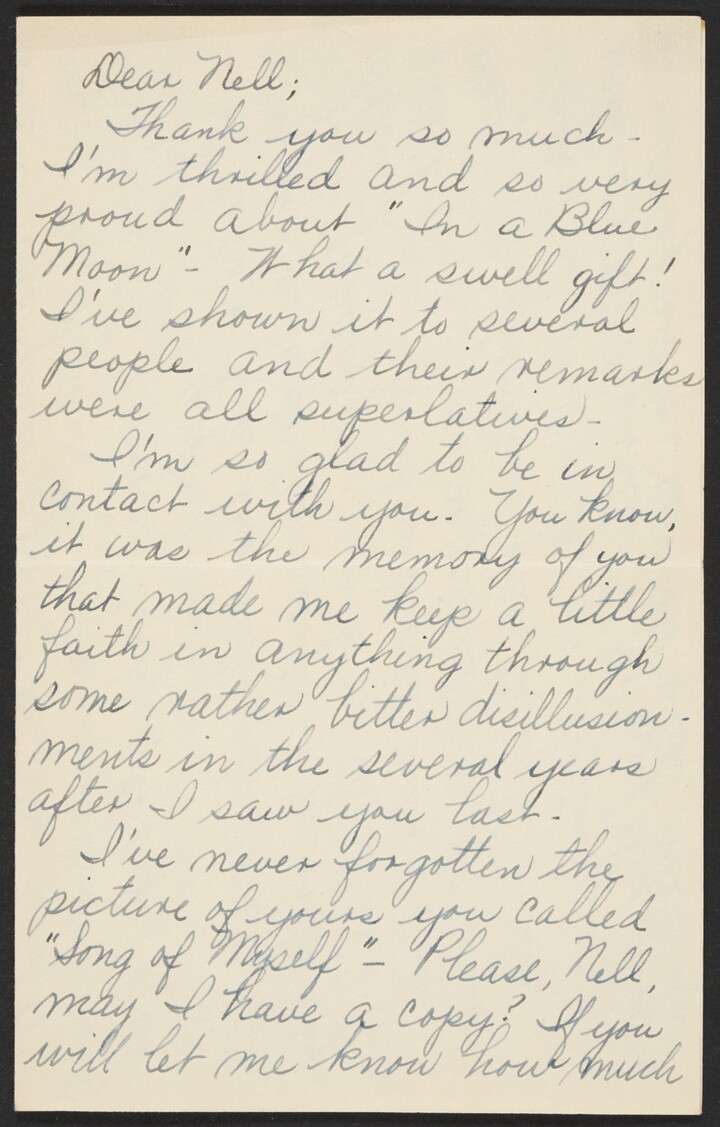 Dear Nell;
Thank you so much -
I'm thrilled and so very
proud about "In a Blue
Moon" - What a swell gift!
I've shown it to several
people and their remarks
were all superlatives -
I'm so glad to be in
contact with you. You know,
it was the memory of you
that made me keep a little
faith in anything through
some rather bitter disillusion-
ments in the several years
after I saw you last.
I've never forgotten the
picture of yours you called
"Song of Myself" - Please, Nell,
may I have a copy? If you
will let me know how much